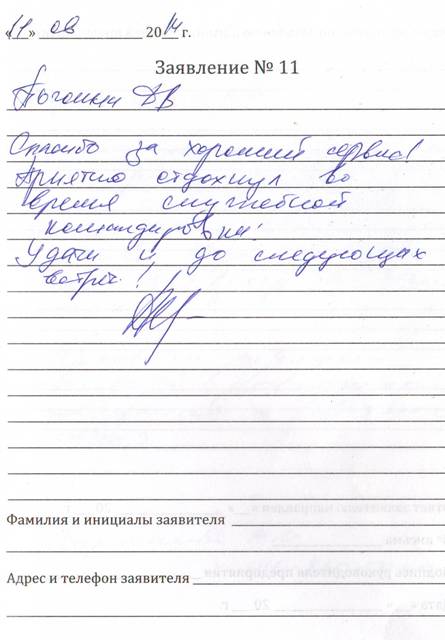 «11» 08 2014 г.
Заявление № 11
Пыгонин ДВ
Спасибо за хороший сервис!
Приятно отдохнул во
время служебной
командировки!
Удачи и до следующих
встреч!
Фамилия и инициалы заявителя
Адрес и телефон заявителя